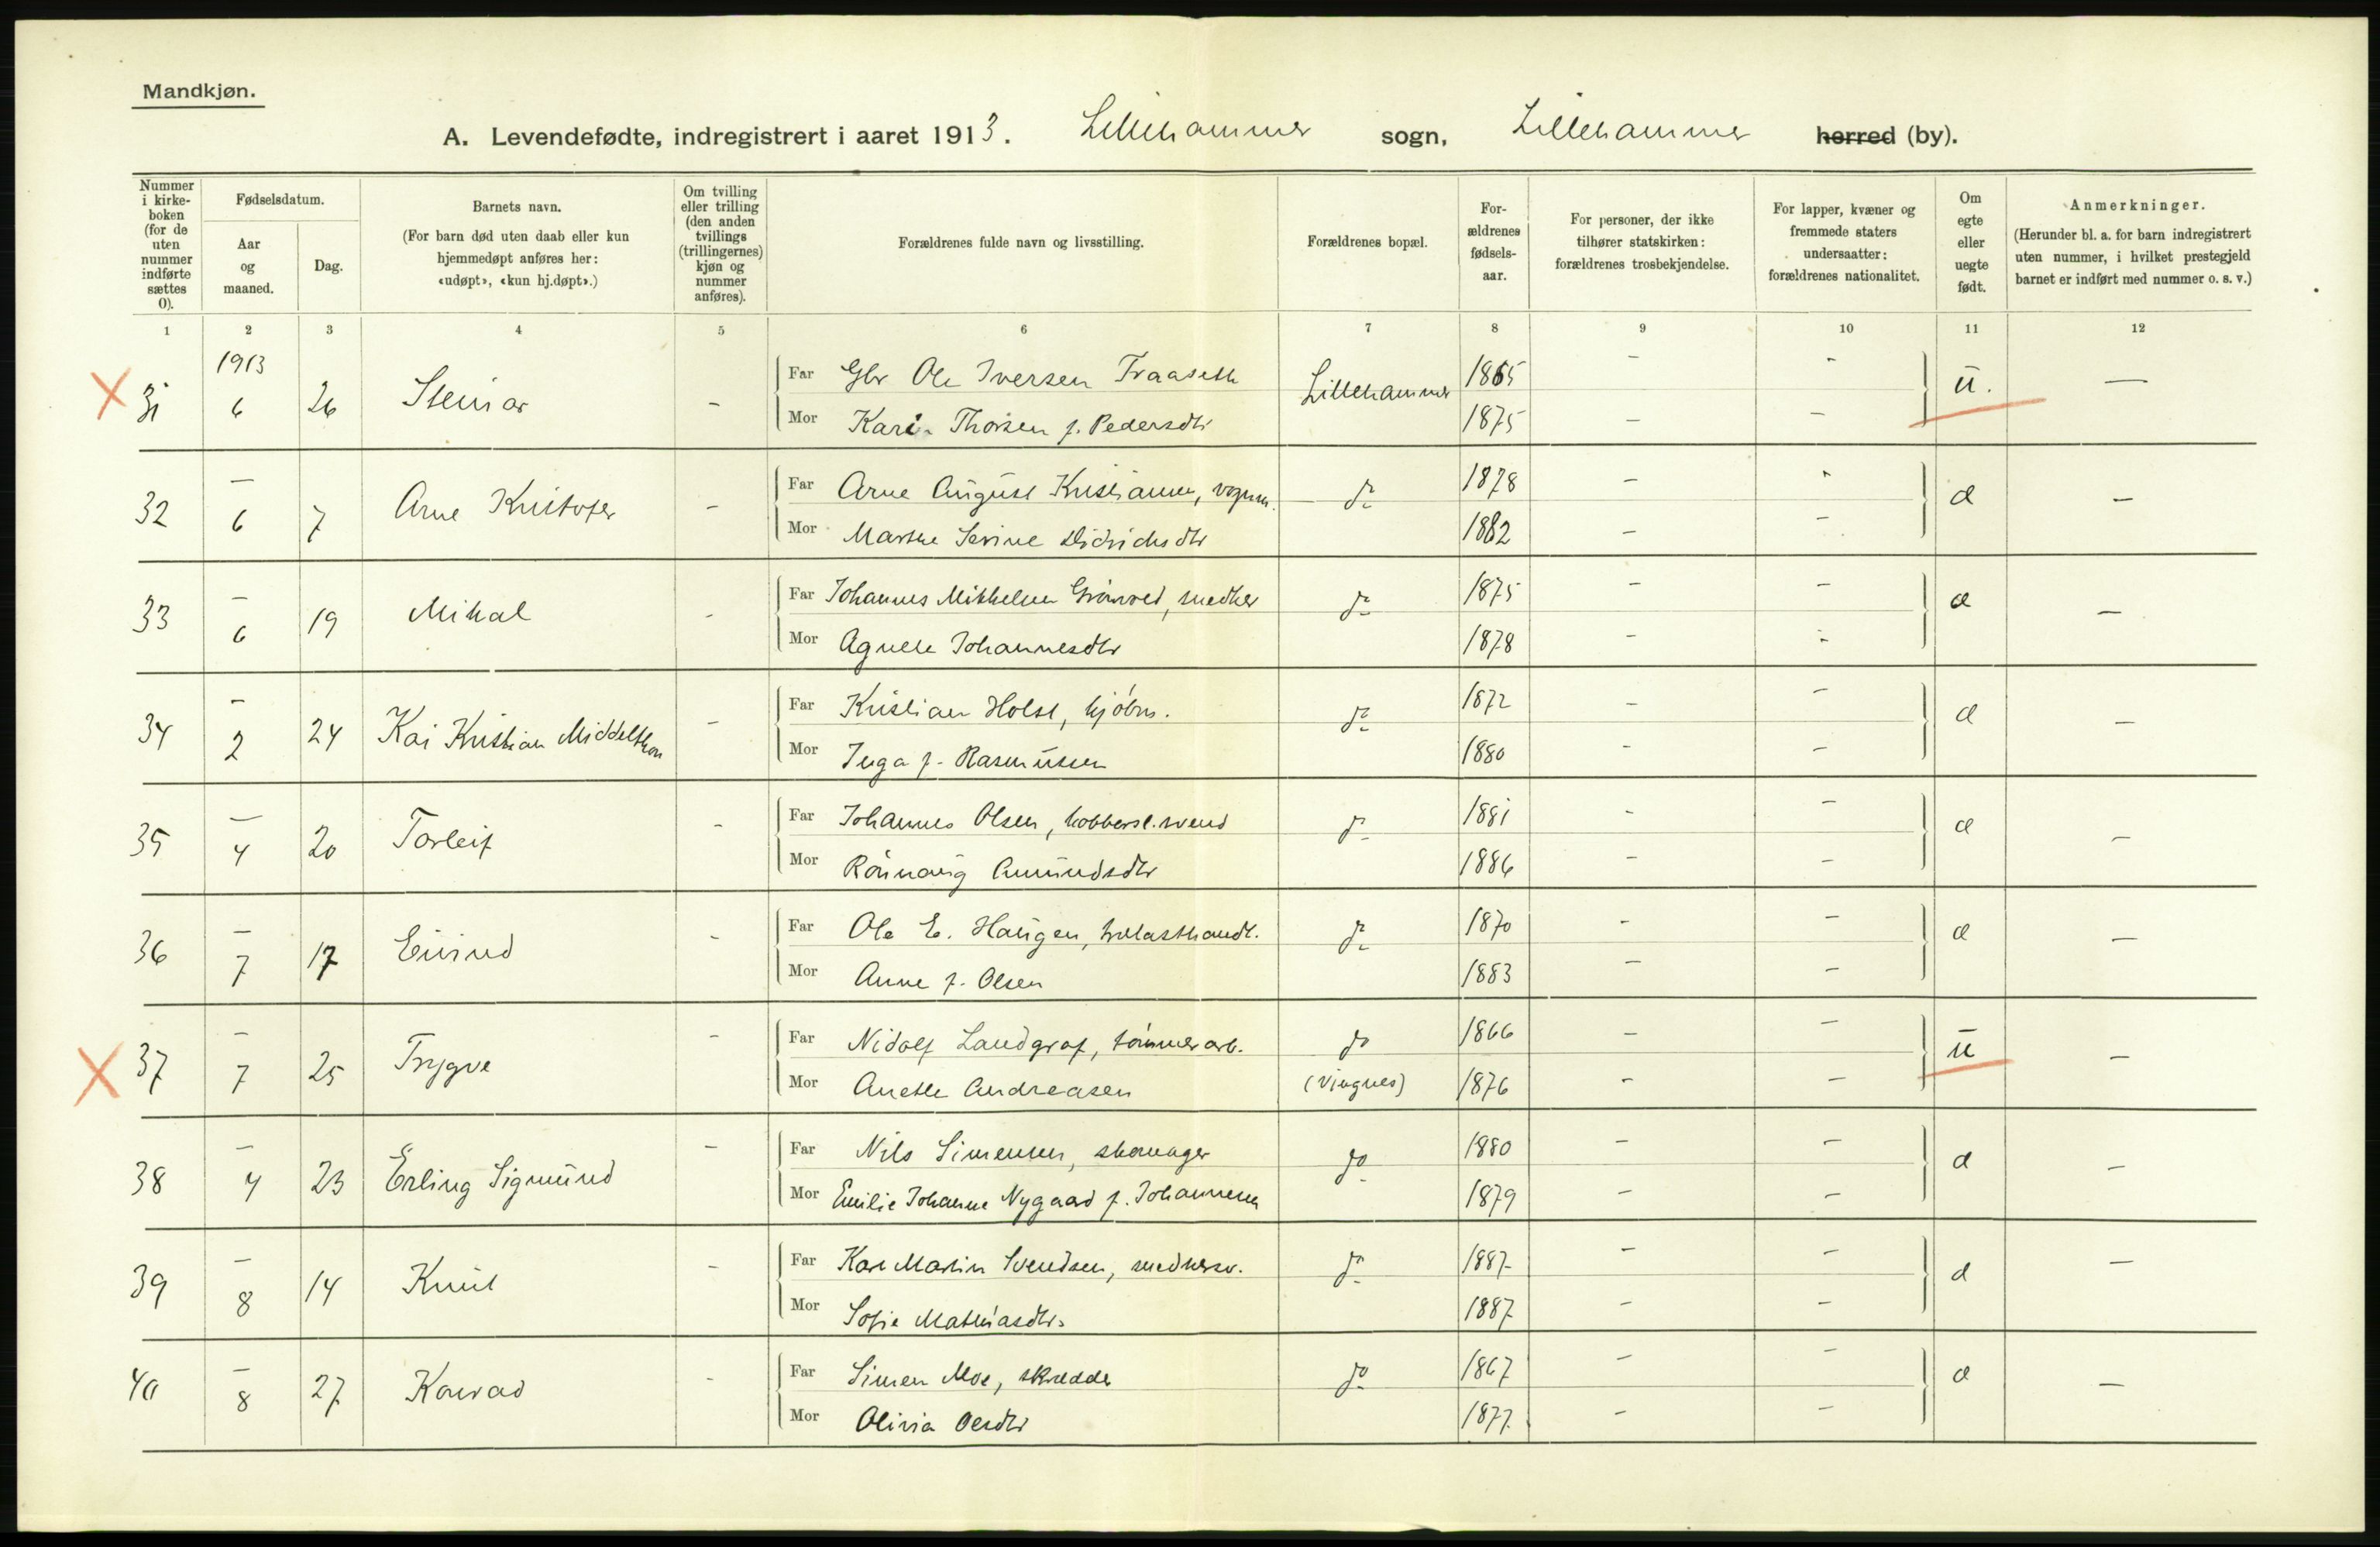 Mandkjøn.
A. Levendefødte, indregistrert i aaret 1913. Lillehammer sogn, Lillehammer herred (by).
Nummer i kirkeboken (for de uten nummer indførte sættes 0).
Fødselsdatum.
Aar og maaned.
Dag.
Barnets navn.
(For barn død uten daab eller kun hjemmedøpt anføres her: «udøpt», «kun hj.døpt».)
Om tvilling eller trilling (den anden tvillings (trillingernes) kjøn og nummer anføres).
Forældrenes fulde navn og livsstilling.
Forældrenes bopæl.
For-ældrenes fødsels-aar.
For personer, der ikke tilhører statskirken: forældrenes trosbekjendelse.
For lapper, kvæner og fremmede staters undersaatter: forældrenes nationalitet.
Om egte eller uegte født.
Anmerkninger.
(Herunder bl. a. for barn indregistrert uten nummer, i hvilket prestegjeld barnet er indført med nummer o. s. v.)
1 2 3 4 5 6 7 8 9 10 11 12
X 31 1913 6 26 Steinar - Far Gbr Ole Iversen Fraaseth Lillehammer 1865 - - u. —
Mor Kari Thorsen f. Pedersdtr 1875 - -
32 — 6 7 Arne Kristofer - Far Arne August Kristiansen, vognm. do 1878 - - e —
Mor Marthe Serine Didrichsdtr 1882 - -
33 — 6 19 Mihal - Far Johannes Mikkelsen, snedker do 1875 - - e —
Mor Agnete Johannesdtr 1878 - -
34 — 2 24 Kai Kristian Middelthon - Far Kristian Holst, kjøbm. do 1872 - - e —
Mor Inga f. Rasmussen 1880 - -
35 — 4 20 Torleif - Far Johannes Olsen, kobbersl.svend do 1881 - - e —
Mor Rønnaug Amundsdtr 1886 - -
36 — 7 17 Eivind - Far Ole E. Haugen, trælasthandl. do 1870 - - e —
Mor Anne f. Olsen 1883 - -
X 37 — 7 25 Trygve - Far Nidolf Landgraf, tømmerarb. do 1866 - - u —
Mor Anette Andreasen (Vingnes) 1876 - -
38 — 4 23 Erling Sigmund - Far Nils Simensen, skomager do 1880 - - e —
Mor Emilie Johanne Nygaard f. Johannesen 1879 - -
39 — 8 14 Knut - Far Karl Martin Svendsen, snedkersv. do 1887 - - e —
Mor Sofie Mathiasdtr. 1887 - -
40 — 8 27 Konrad - Far Simen Moe, skrædder do 1867 - - e —
Mor Olivia Olsdtr 1877 - -